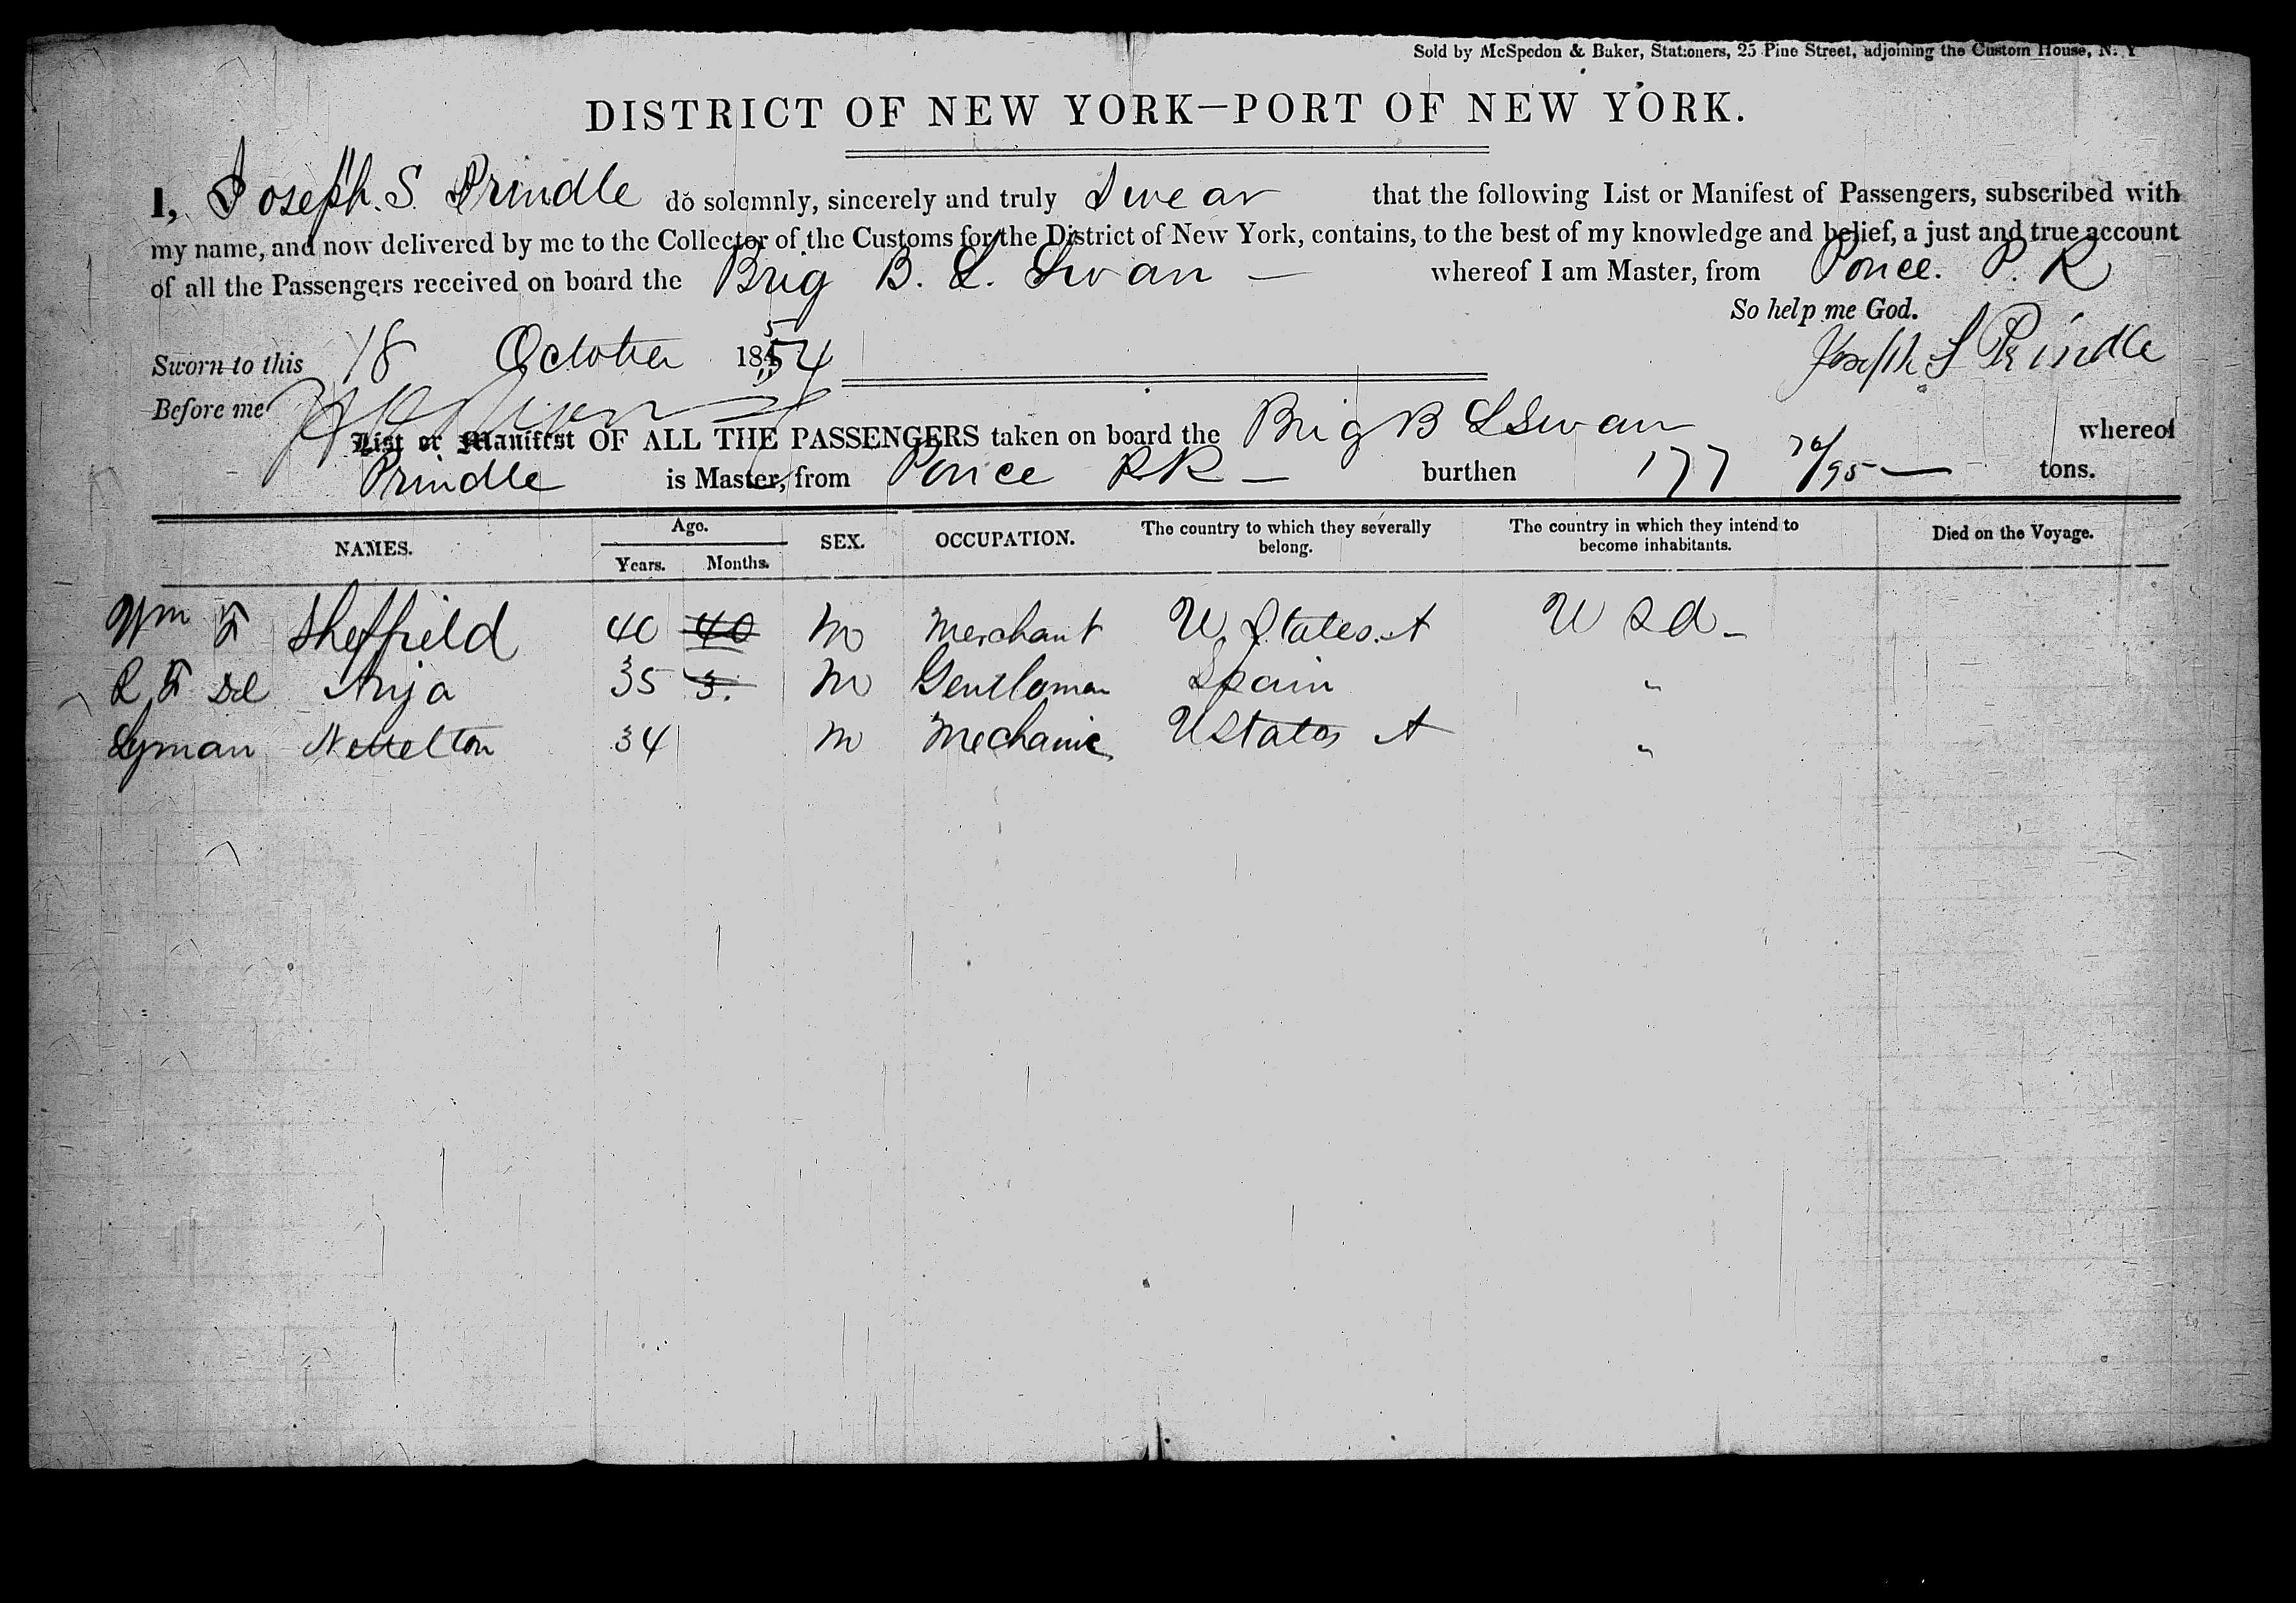 Sold by McSpedon & Baker, Stationers, 25 Pine Street, adjoining the Custom House, N. Y
DISTRICT OF NEW YORK—PORT OF NEW YORK.
I, Joseph. S. Prindle do solemnly, sincerely and truly Swear that the following List or Manifest of Passengers, subscribed with
my name, and now delivered by me to the Collector of the Customs for the District of New York, contains, to the best of my knowledge and belief, a just and true account
of all the Passengers received on board the Brig B. L. Swan — whereof I am Master, from Ponce. P. R
So help me God.
Sworn to this 18 October 1854 Joseph S Prindle
Before me
List or Manifest OF ALL THE PASSENGERS taken on board the Brig B L Swan whereof
Prindle is Master, from Ponce P.R — burthen 177 /95 — tons.
NAMES. Age. SEX. OCCUPATION. The country to which they severally belong. The country in which they intend to become inhabitants. Died on the Voyage.
Years. Months.
Wm Sheffield 40 40 M Merchant U. States. A U S A -
R Del Anja 35 3. M Gentleman Spain "
Lyman Nettelton 34 M Mechanic U States A "